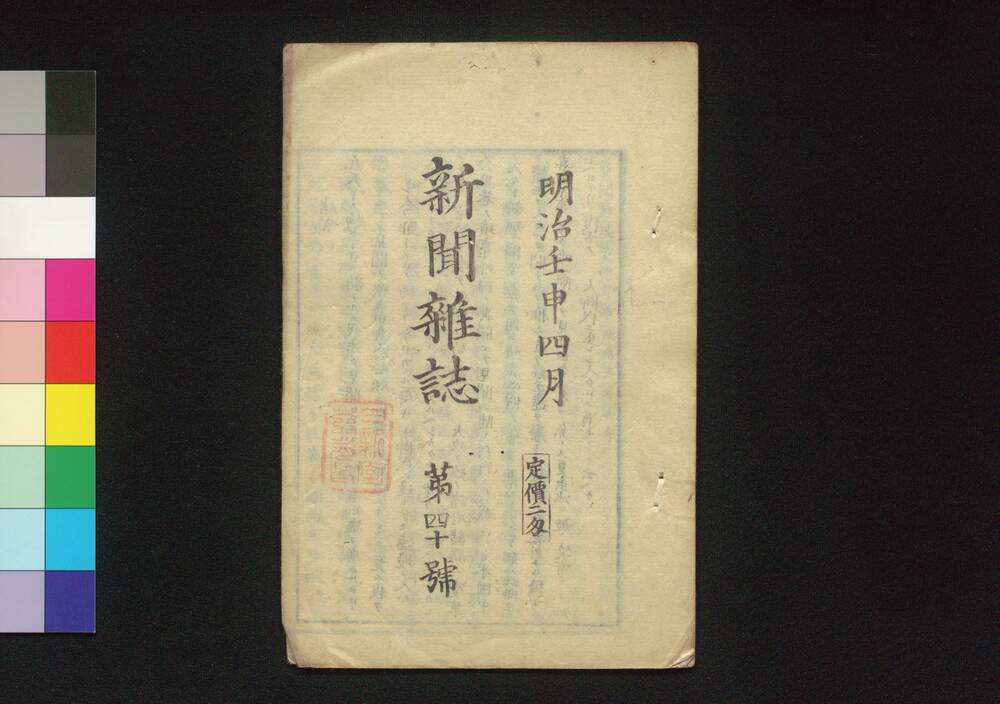 明治壬申四月
定價二匁
新聞雜誌
第四十號